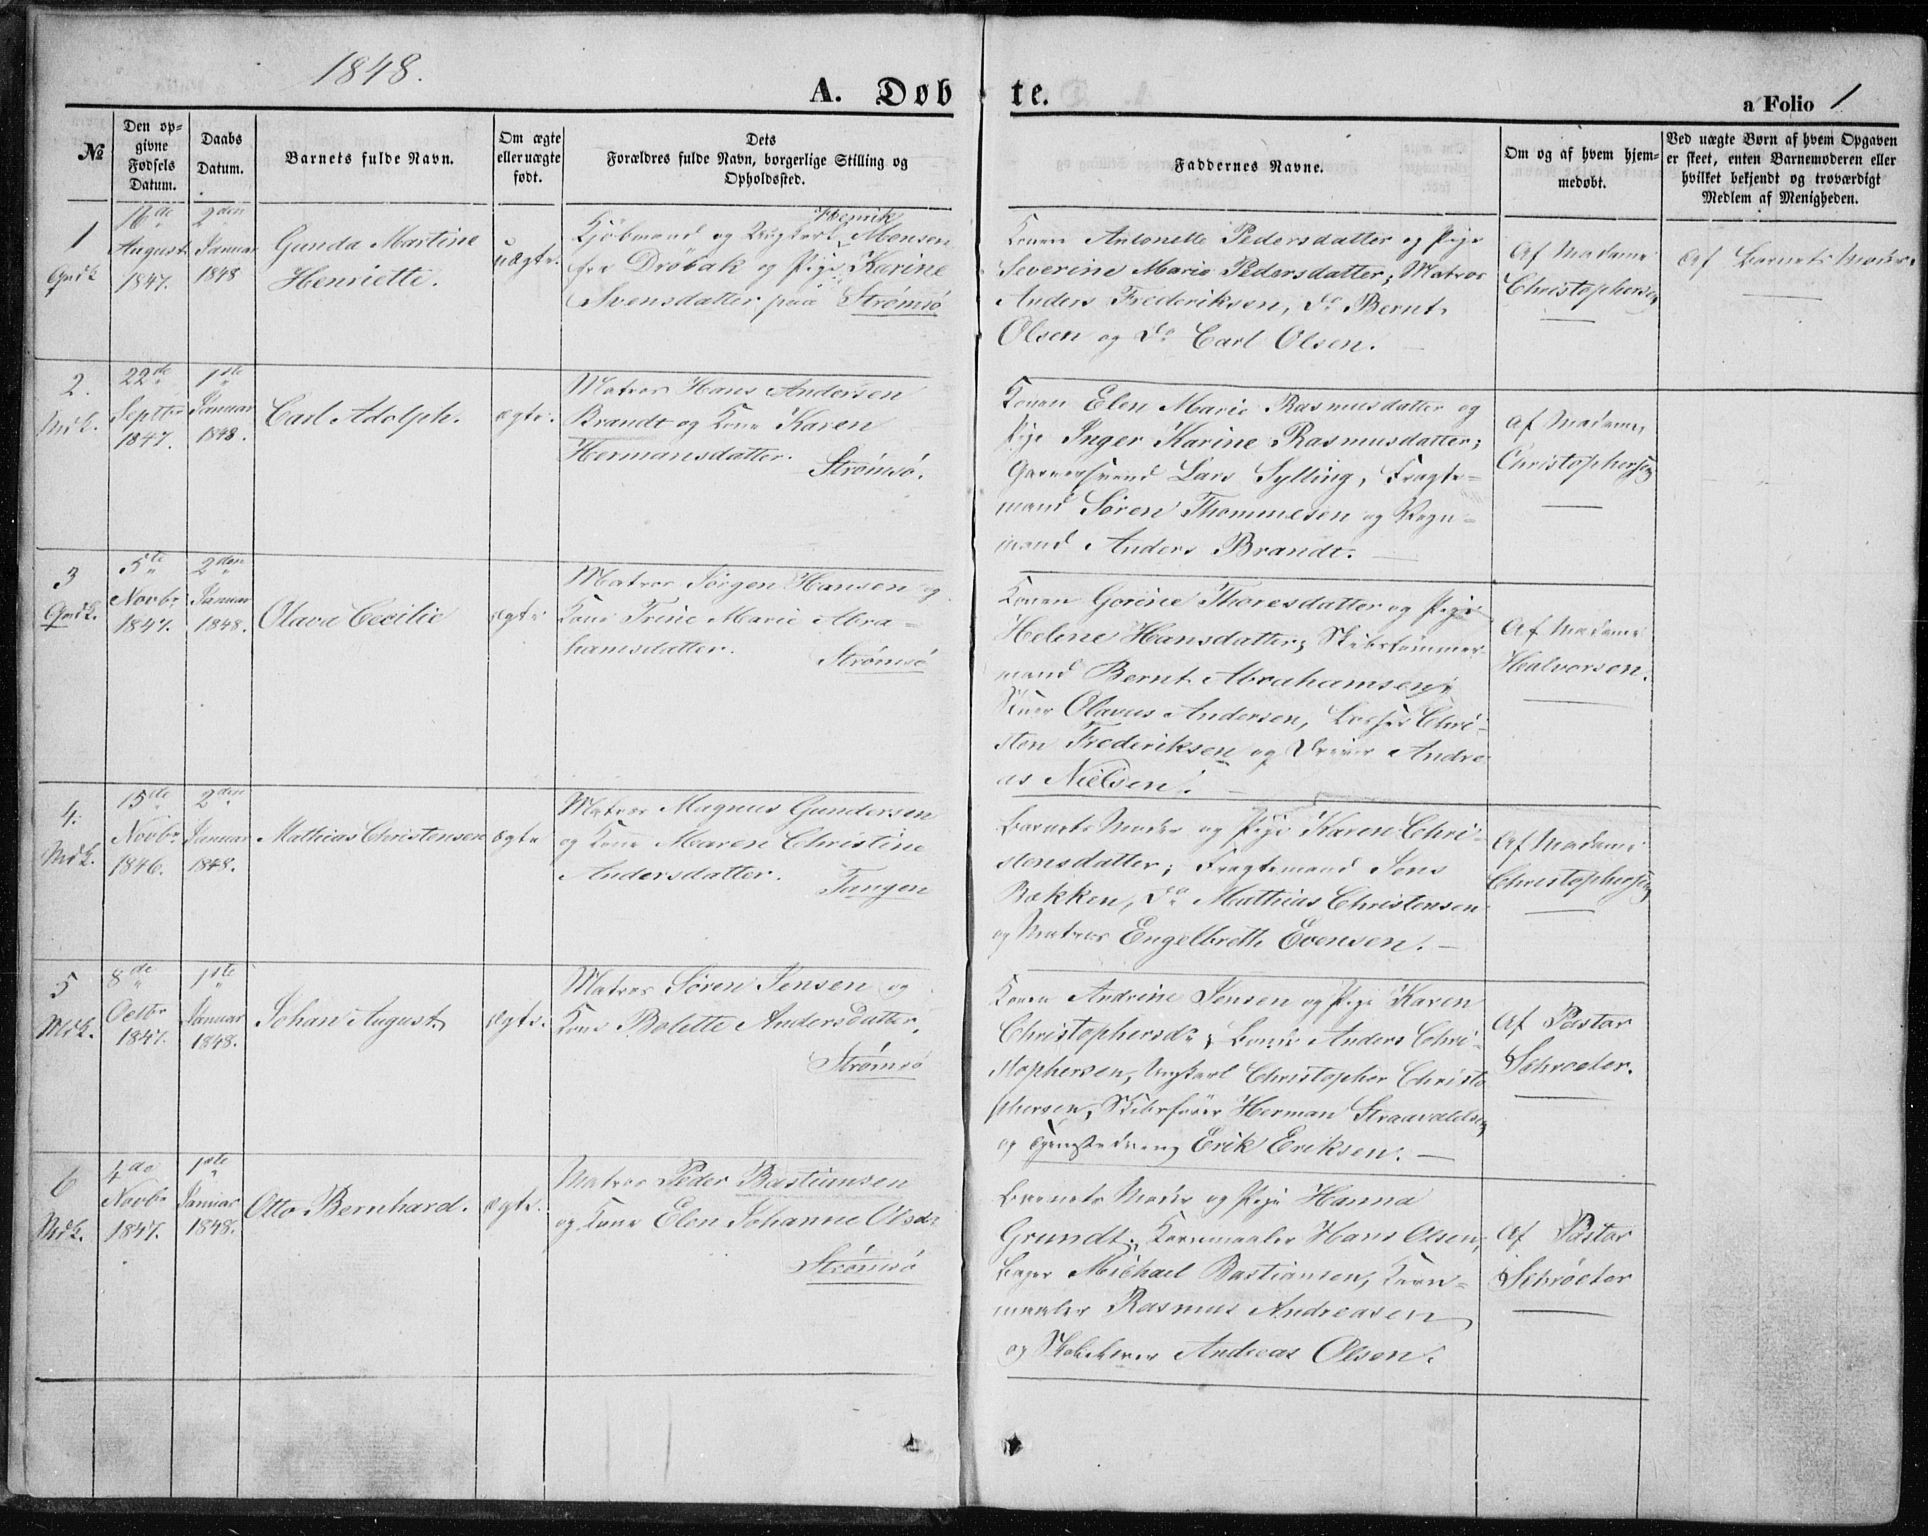 1848.
A. Døbte.
a Folio 1
№
Den op-
givne
Fødsels
Datum.
Daabs
Datum.
Barnets fulde Navn.
Om ægte
eller uægte
født.
Dets
Forældres fulde Navn, borgerlige Stilling og
Opholdssted.
Faddernes Navne.
Om og af hvem hjem-
medøbt.
Ved uægte Børn af hvem Opgaven
er skeet, enten Barnemoderen eller
hvilket bekjendt og troværdigt
Medlem af Menigheden.
1
Qvdk
16de
August
1847.
2den
Januar
1848
Gunda Martine
Henriette.
uægte.
Henrik
Kjøbmand og Ungkarl Monsen
fra Drøbak og Pige Karine
Svensdatter paa Strømsö
Konen Antonette Pedersdatter og Pige
Severine Marie Pedersdatter; Matros
Anders Frederiksen, Do Bernt
Olsen og Do Carl Olsen.
Af Madame
Christophersen
Af Barnets Moder.
2.
Mdk.
22de
Septber
1847.
1ste
Januar
1848.
Carl Adolph.
ægte.
Matros Hans Andersen
Brandt og Kone Karen
Hermansdatter.
Strømsö.
Konen Elen Marie Rasmusdatter og
Pige Inger Karine Rasmusdatter;
Garversvend Lars Sylling, Fragte-
mand Søren Thommesen og Vogn-
mand Anders Brandt.
Af Madame
Christophersen
3
Qvdk.
5te
Novbr
1847.
2den
Januar
1848.
Olava Cecilie
ægte
Matros Jörgen Hansen og
Kone Trine Marie Abra-
hamsdatter.
Strømsö
Konen Gorine Thoresdatter og Pige
Helene Hansdatter; Skibstømmer-
mand Bernt Abrahamsen,
Olavus Andersen, Chri-
sten Frederiksen og Andre-
as Nielsen.
Af Madame
Halvorsen.
4.
Mdk.
15de
Novbr
1846.
2den
Januar
1848.
Mathias Christensen
ægte
Matros Magnus Gundersen
og Kone Maren Christine
Andersdatter.
Tangen
Barnets Moder og Pige Karen Chri-
stensdatter; Fragtemand Jens
Bækken, Do Mathias Christensen
og Matros Engelbreth Evensen.
Af Madame
Christophersen
5
Mdk.
8de
Octbr
1847.
1ste
Januar
1848.
Johan August
ægte.
Matros Sören Jensen og
Kone Bolette Andersdatter.
Strømsö
Konen Andrine Jensen og Pige Karen
Christophersdr; Anders Chri-
stophersen, Ungkarl Christopher Christo
phersen, Skibsfører Herman Straavaldsen
og Tjenestedreng Erik Eriksen.
Af Pastor
Schroeter.
6
Mdk.
4de
Novbr
1847.
1ste
Januar
1848.
Otto Bernhard.
ægte.
Matros Peder Bastiansen
og Kone Elen Johanne Olsdr
Strømsö
Barnets Moder og Pige Hanna
Grundt; Kornmaaler Hans Olsen,
Bager Michael Bastiansen, Korn-
maaler Rasmus Andreasen
og Andreas Olsen.
Af Pastor
Schröeter